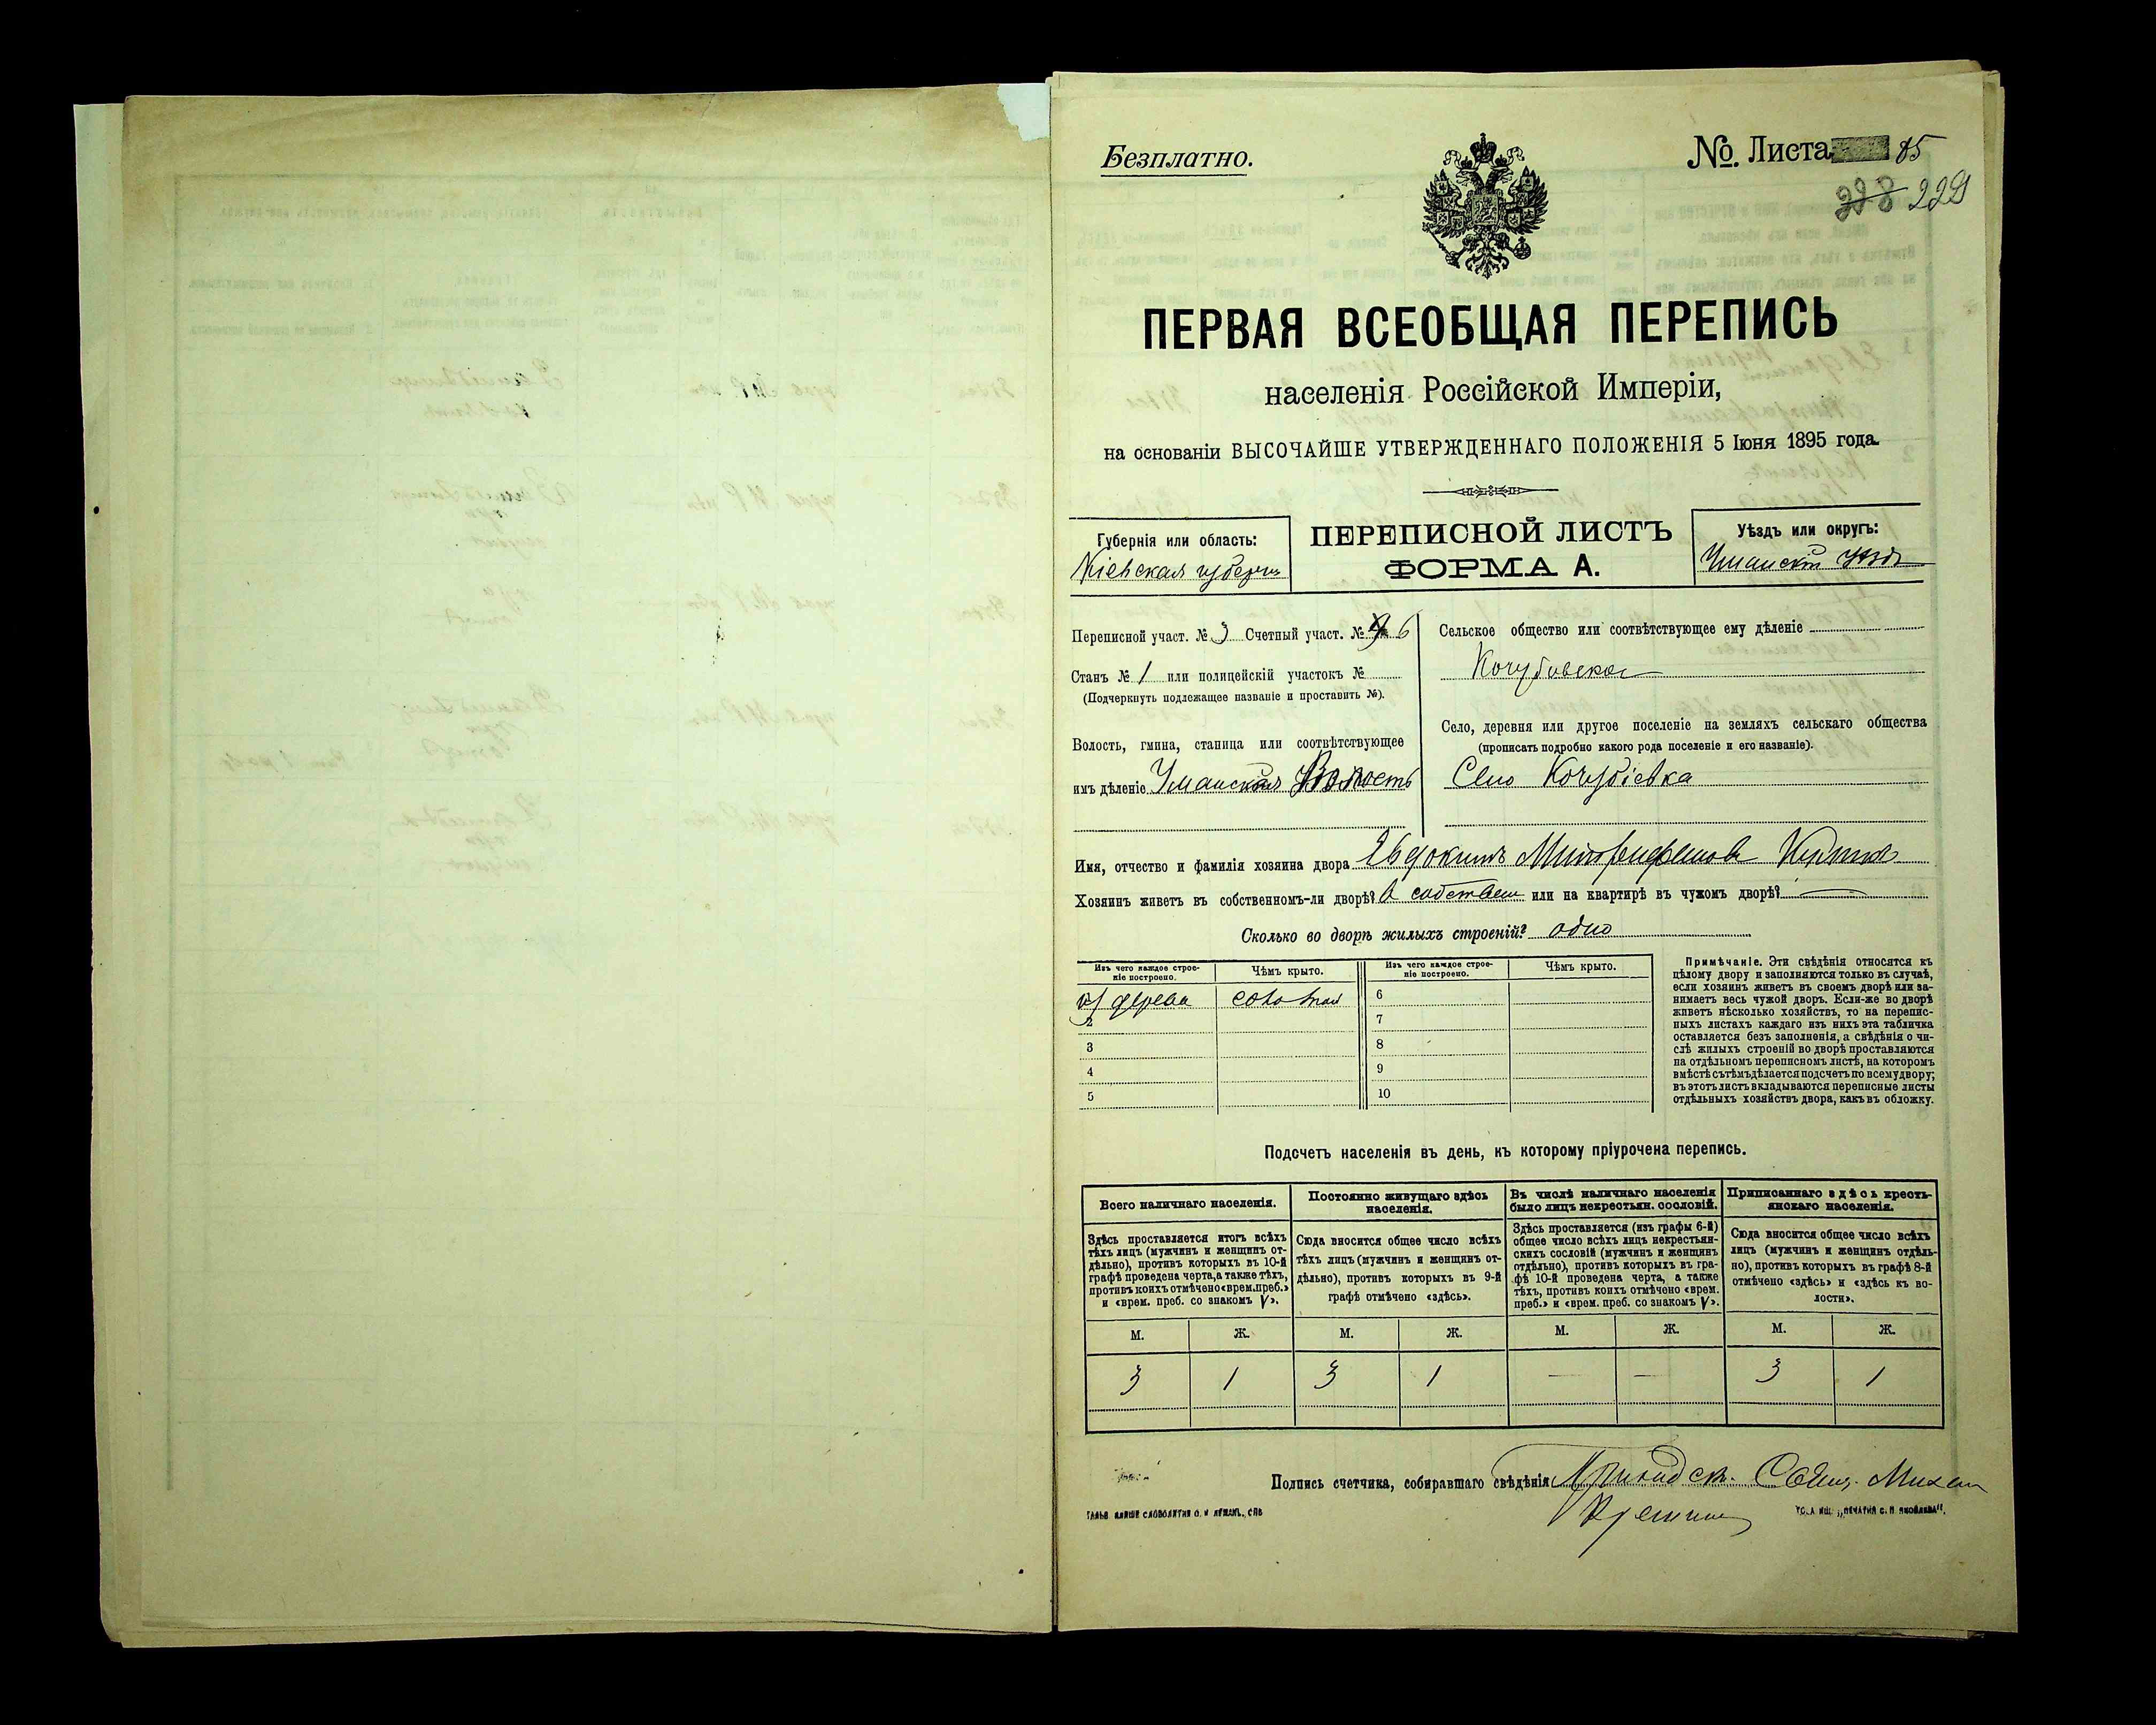 Безплатно.
№. Листа 85
228 229
ПЕРВАЯ ВСЕОБЩАЯ ПЕРЕПИСЬ
населенія Россійской Имперіи,
на основаніи ВЫСОЧАЙШЕ УТВЕРЖДЕННАГО ПОЛОЖЕНІЯ 5 Іюня 1895 года.
Губернія или область:
Кіевская губернія
ПЕРЕПИСНОЙ ЛИСТЪ
ФОРМА А.
Уѣздъ или округъ:
Уманскій уѣздъ
Переписной участ. № 3 Счетный участ. № 6
Станъ № 1 или полицейскій участокъ №
(Подчеркнуть подлежащее названіе и проставить №).
Волость, гмина, станица или соотвѣтствующее
имъ дѣленіе Уманская Волость
Сельское общество или соотвѣтствующее ему дѣленіе
Кочубиевское
Село, деревня или другое поселеніе на земляхъ сельскаго общества
(прописать подробно какого рода поселеніе и его названіе).
Село Кочубіевка
Имя, отчество и фамилія хозяина двора Евдокимъ Митрофановъ
Хозяинъ живетъ въ собственномъ-ли дворѣ? в собствен или на квартирѣ въ чужомъ дворѣ? —
Сколько во дворѣ жилыхъ строеній? одно
Изъ чего каждое строеніе построено.
Чѣмъ крыто.
Изъ чего каждое строеніе построено.
Чѣмъ крыто.
из дерева соломой 6
2 7
3 8
4 9
5 10
Примѣчаніе. Эти свѣдѣнія относятся къ
цѣлому двору и заполняются только въ случаѣ,
если хозяинъ живетъ въ своемъ дворѣ или за-
нимаетъ весь чужой дворъ. Если-же во дворѣ
живетъ нѣсколько хозяйствъ, то на перепис-
ныхъ листахъ каждаго изъ нихъ эта табличка
оставляется безъ заполненія, а свѣдѣнія о чи-
слѣ жилыхъ строеній во дворѣ проставляются
на отдѣльномъ переписномъ листѣ, на которомъ
вмѣстѣ съ тѣмъ дѣлается подсчетъ по всему двору;
въ этотъ листъ вкладываются переписные листы
отдѣльныхъ хозяйствъ двора, какъ въ обложку.
Подсчетъ населенія въ день, къ которому пріурочена перепись.
Всего наличнаго населенія.
Здѣсь проставляется итогъ всѣхъ
тѣхъ лицъ (мужчинъ и женщинъ от-
дѣльно), противъ которыхъ въ 10-й
графѣ проведена черта, а также тѣхъ,
противъ коихъ отмѣчено «врем. преб.»
и «врем. преб. со знакомъ V».
Постоянно живущаго здѣсь
населенія.
Сюда вносится общее число всѣхъ
тѣхъ лицъ (мужчинъ и женщинъ от-
дѣльно), противъ которыхъ въ 9-й
графѣ отмѣчено «здѣсь».
Въ числѣ наличнаго населенія
было лицъ некрестьян. сословій.
Здѣсь проставляется (изъ графы 6-й)
общее число всѣхъ лицъ некрестьян-
скихъ сословій (мужчинъ и женщинъ
отдѣльно), противъ которыхъ въ гра-
фѣ 10-й проведена черта, а также
тѣхъ, противъ коихъ отмѣчено «врем.
преб.» и «врем. преб. со знакомъ V».
Приписаннаго здѣсь кресть-
янскаго населенія.
Сюда вносится общее число всѣхъ
лицъ (мужчинъ и женщинъ отдѣль-
но), противъ которыхъ въ графѣ 8-й
отмѣчено «здѣсь» и «здѣсь къ во-
лости».
М. Ж. М. Ж. М. Ж. М. Ж.
3 1 3 1 — — 3 1
Подпись счетчика, собиравшаго свѣдѣнія Свящ. Михаил